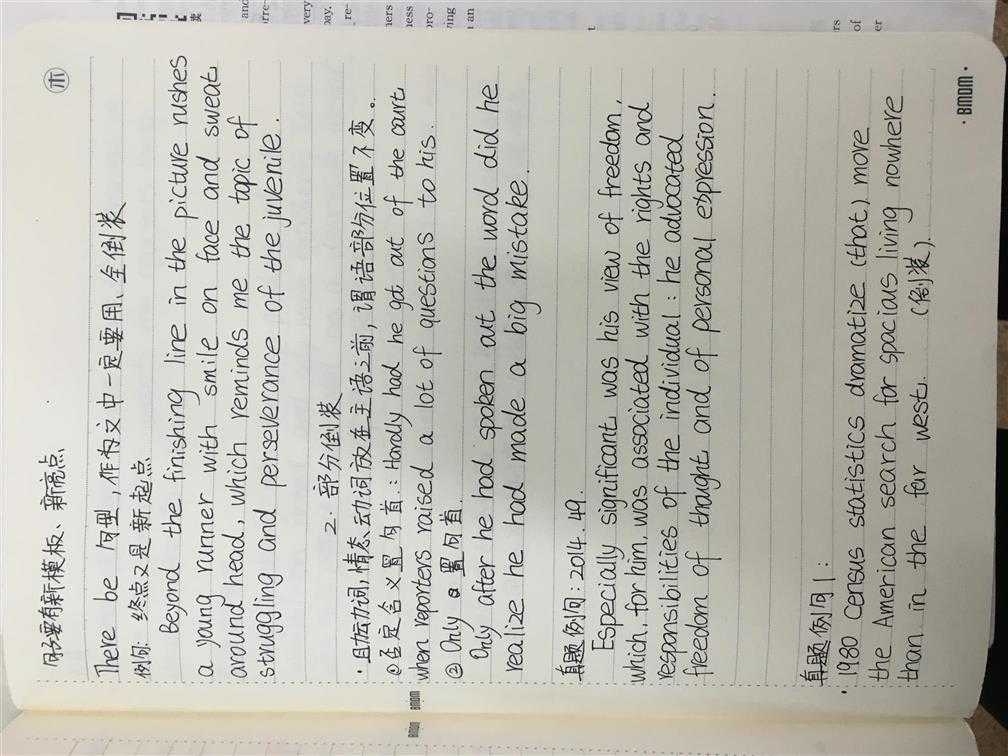 句子要有新模板、新亮点
木
There be 句型,作为文中一定要用、全倒装
例句: 终点又是新起点
Beyond the finishing line in the picture rushes
a young runner with smile on face and sweat
around head, which reminds me the topic of
struggling and perseverance of the juvenile.
2. 部分倒装
·助动词,情态动词放在主语之前,谓语部分位置不变。
①否定含义置句首: Hardly had he got out of the court
when reporters raised a lot of questions to his.
② Only 置句首
Only after he had spoken out the word did he
realize he had made a big mistake.
真题例句:2014.49.
Especially significant was his view of freedom,
which, for him, was associated with the rights and
responsibilities of the individual: he advocated
freedom of thought and of personal expression.
真题例句1:
1980 Census statistics dramatize (that) more
the American search for spacious living nowhere
than in the far west. (倒装)
BMOM
BMOM
BMOM